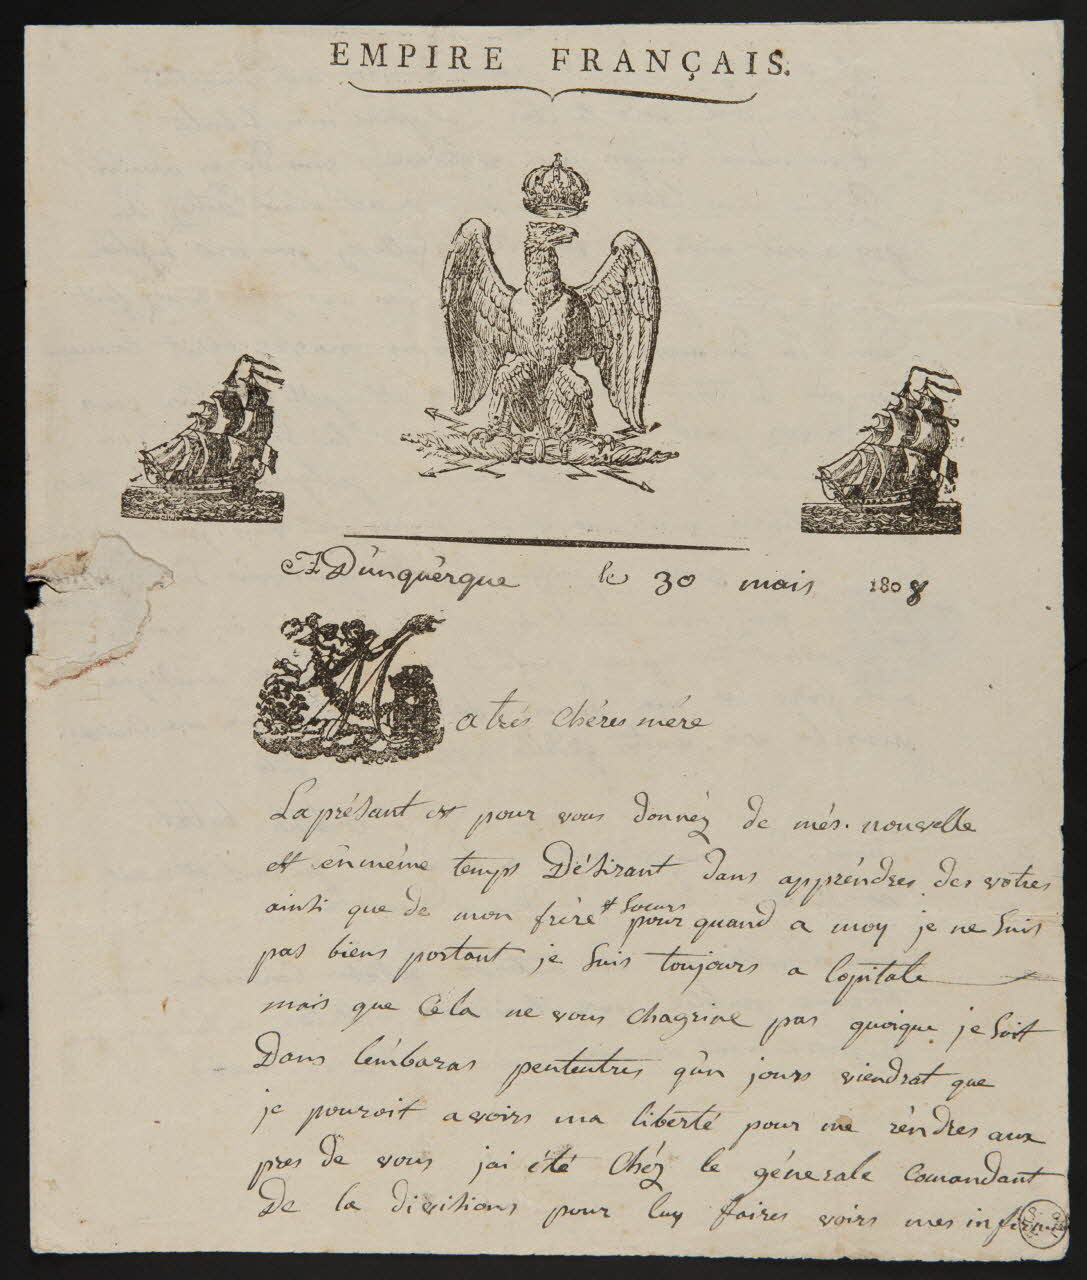 EMPIRE FRANÇAIS.
A Dùnquèrque le 30 mais 1808
a trés Chéres mére
La présant est pour vous donnéz de més. nouvelle
est ênméme temps Désirant dans appréndres des votres
ainsi que de mon frére et Soeurs pour quand a moy je ne Suis
pas biens portant je Suis toujours a lopitale
mais que Cela ne vous Chagrine pas quoique je Soit
Dans lémbaras peutentres qùn jours viendrat que
je pouroit avoirs ma liberté pour me réndres aux
pres de vous jai été Chéz le génerale Comandant
De la divisions pour luy faires voirs mes infirmi